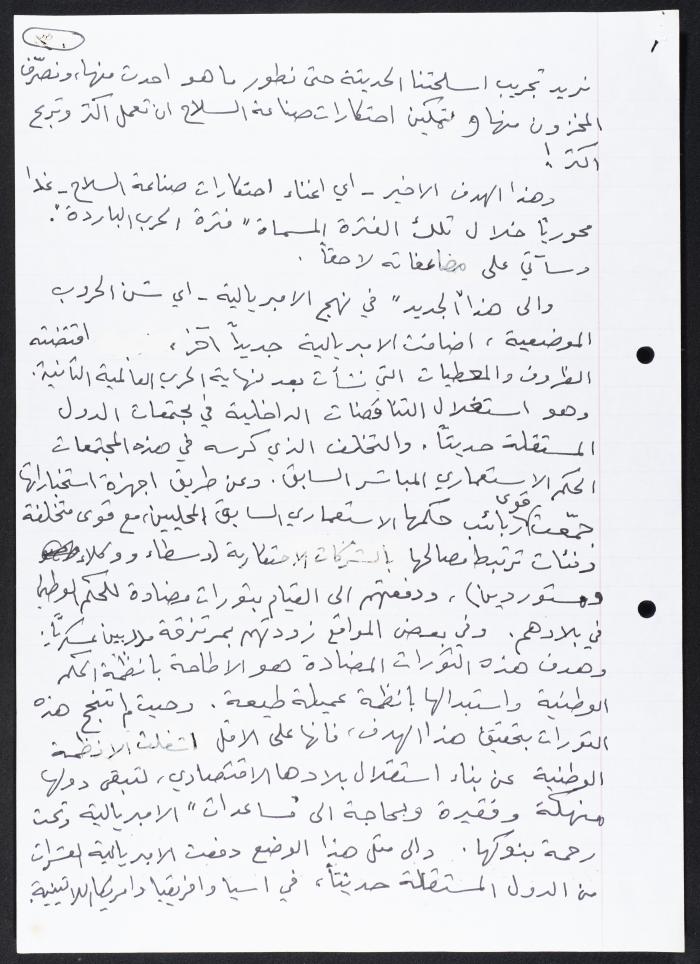 ١
نريد تجريب اسلحتنا الحديثة حتى نطور ما هو احدث منها، ونصرّف
المخزون منها وتمكين احتكارات صناعة السلاح ان تعمل اكثر وتربح
اكثر!
وهذا الهدف الاخير - اي اغناء احتكارات صناعة السلاح - غدا
محورياً خلال تلك الفترة المسماة "فترة الحرب الباردة".
وسآتي على مضاعفاته لاحقاً.
والى هذا "الجديد" في نهج الامبريالية - اي شن الحروب
الموضعية، اضافت الامبريالية جديداً آخر، اقتضته
الظروف والمعطيات التي نشأت بعد نهاية الحرب العالمية الثانية.
وهو استغلال التناقضات الداخلية في مجتمعات الدول
المستقلة حديثاً. والتخلف الذي كرسه في هذه المجتمعات
الحكم الاستعماري المباشر السابق. وعن طريق اجهزة استخباراتها
جمّعت قوى ربائب حكمها الاستعماري السابق المحليين، مع قوى متخلفة
وفئات ترتبط مصالحها بالشركات الاحتكارية (وسطاء ووكلاء
ومستوردين)، ودفعتهم الى القيام بثورات مضادة للحكم الوطني
في بلادهم. وفي بعض المواقع زودتهم بمرتزقة مدربين عسكريّاً.
وهدف هذه الثورات المضادة هو الاطاحة بانظمة الحكم
الوطنية واستبدالها بانظمة عميلة طيعة. وحيث لم تنجح هذه
الثورات بتحقيق هذا الهدف، فانها على الاقل اشغلت الانظمة
الوطنية عن بناء استقلال بلادها الاقتصادي، لتبقى دولها
منهكة وفقيرة وبحاجة الى "مساعدات" الامبريالية وتحت
رحمة بنوكها. والى مثل هذا الوضع دفعت الامبريالية العشرات
من الدول المستقلة حديثاً، في اسيا وافريقيا وامريكا اللاتينية.